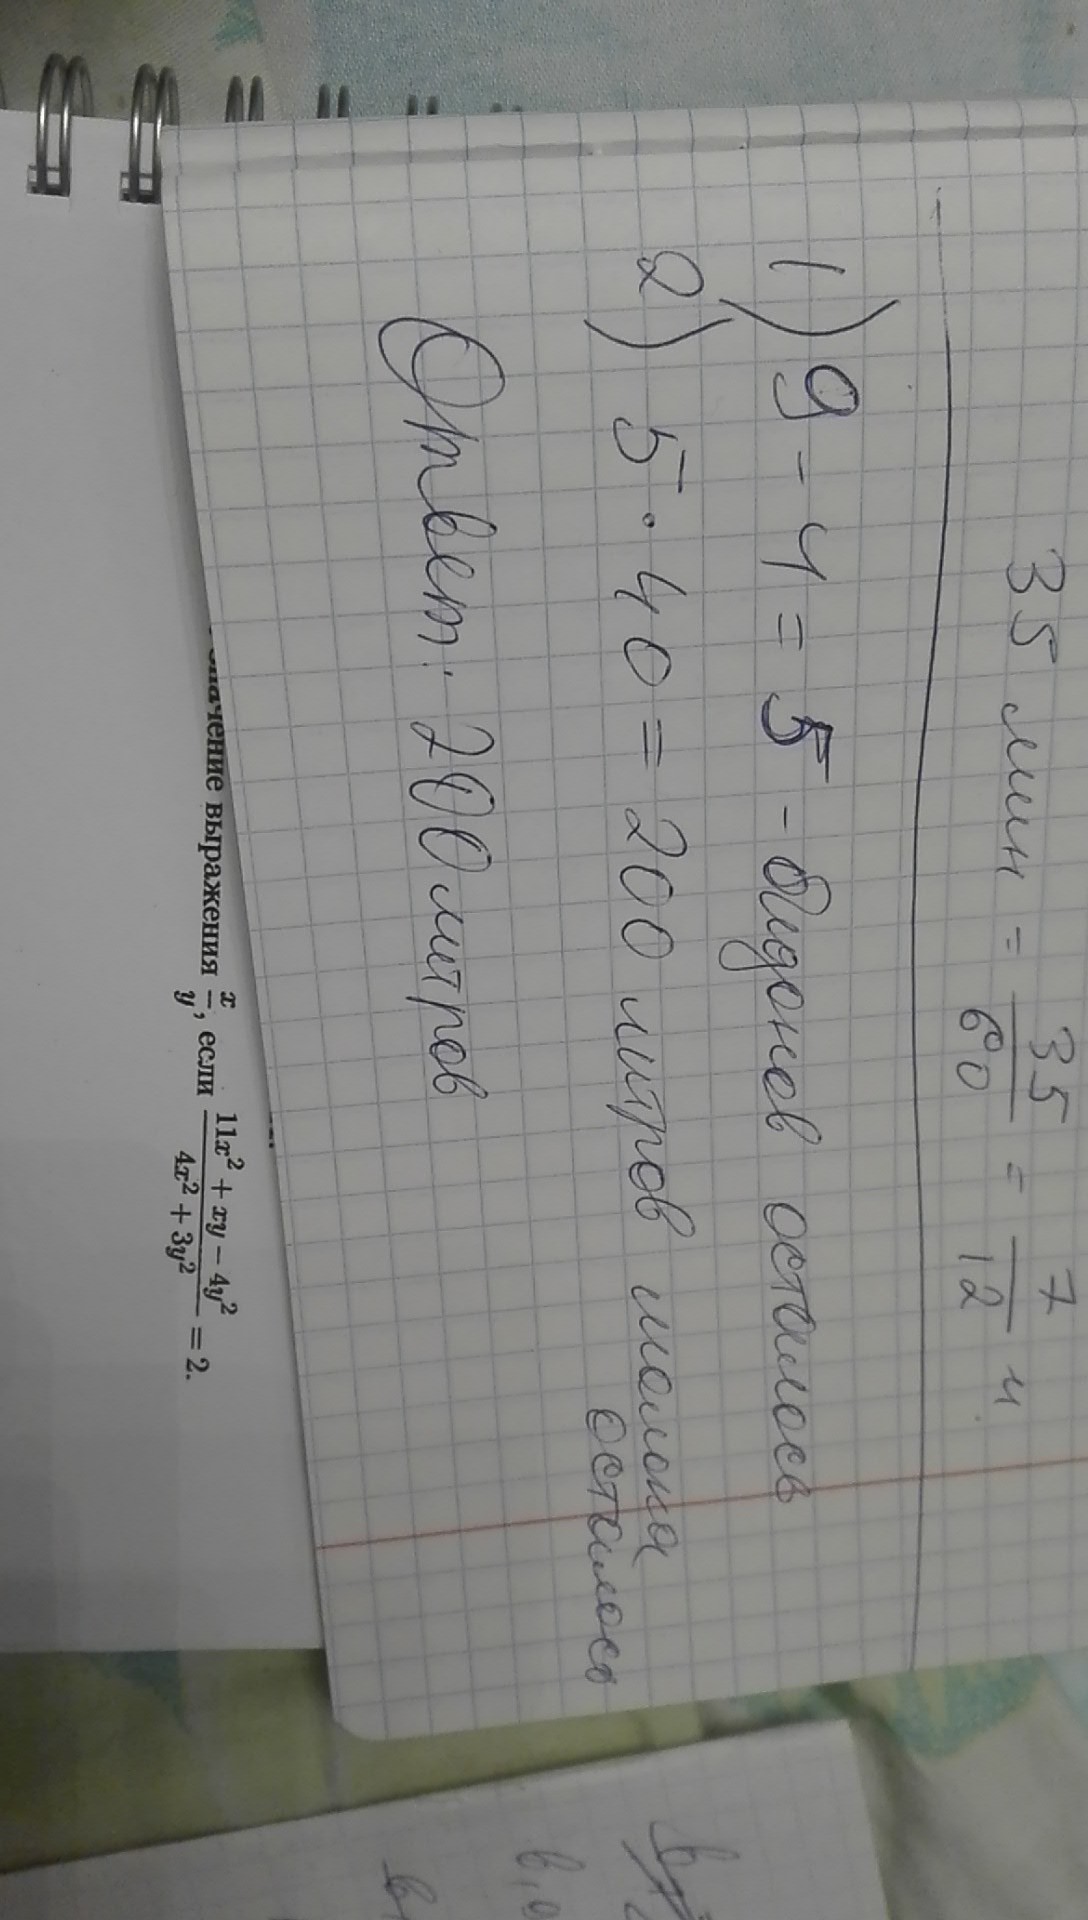 35 мин = 35/60 = 7/12 ч
1) 9 - 4 = 5 - бидонов осталось
2) 5 · 40 = 200 литров молока
осталось
Ответ: 200 литров
значение выражения x/y, если (11x² + xy − 4y²)/(4x² + 3y²) = 2.